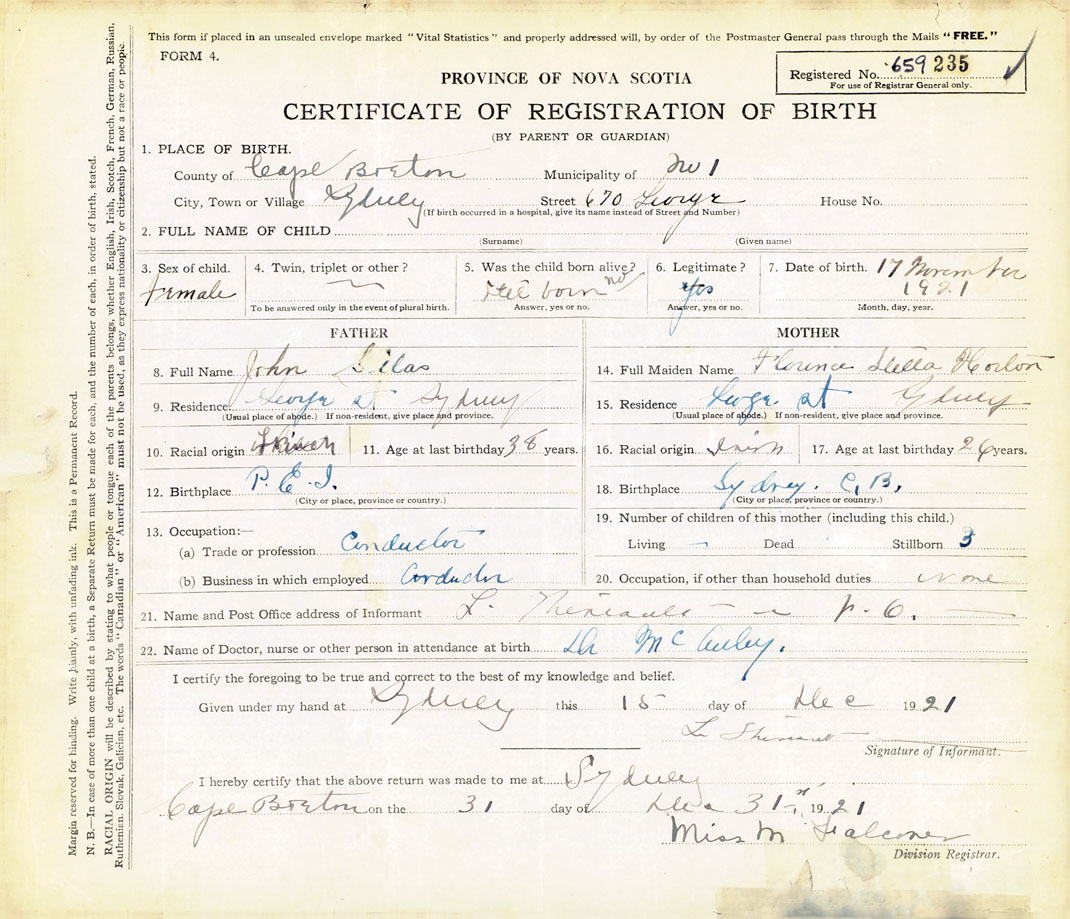 This form if placed in an unsealed envelope marked "Vital Statistics" and properly addressed will, by order of the Postmaster General pass through the Mails "FREE."
FORM 4.
Registered No. 659235
For use of Registrar General only.
PROVINCE OF NOVA SCOTIA
CERTIFICATE OF REGISTRATION OF BIRTH
(BY PARENT OR GUARDIAN)
1. PLACE OF BIRTH.
County of Cape Breton Municipality of No 1
City, Town or Village Sydney Street 670 George House No.
(If birth occurred in a hospital, give its name instead of Street and Number)
2. FULL NAME OF CHILD
(Surname) (Given name)
3. Sex of child. 4. Twin, triplet or other? 5. Was the child born alive? 6. Legitimate? 7. Date of birth. 17 November
Female born no Yes 1921
To be answered only in the event of plural birth. Answer, yes or no. Answer, yes or no. Month, day, year.
FATHER
8. Full Name John Silas
9. Residence George St Sydney
(Usual place of abode.) If non-resident, give place and province.
10. Racial origin 11. Age at last birthday 38 years.
12. Birthplace P. E. I.
(City or place, province or country.)
13. Occupation:—
(a) Trade or profession Conductor
(b) Business in which employed Conductor
MOTHER
14. Full Maiden Name Florence Stella Horton
15. Residence George St Sydney
(Usual place of abode.) If non-resident, give place and province.
16. Racial origin Irish 17. Age at last birthday 26 years.
18. Birthplace Sydney. C. B.
(City or place, province or country.)
19. Number of children of this mother (including this child.)
Living — Dead Stillborn 3
20. Occupation, if other than household duties none
21. Name and Post Office address of Informant L. Theriault P. O.
22. Name of Doctor, nurse or other person in attendance at birth Dr McAuley.
I certify the foregoing to be true and correct to the best of my knowledge and belief.
Given under my hand at Sydney this 15 day of Dec 1921
L Theriault
Signature of Informant.
I hereby certify that the above return was made to me at Sydney
Cape Breton on the 31 day of Dec 31st 1921
Miss M Falconer
Division Registrar.
Margin reserved for binding. Write plainly, with unfading ink. This is a Permanent Record.
N. B.—In case of more than one child at a birth, a Separate Return must be made for each, and the number of each, in order of birth, stated.
RACIAL ORIGIN will be described by stating to what people or tongue each of the parents belongs, whether English, Irish, Scotch, French, German, Russian,
Ruthenian, Slovak, Galician, etc. The words "Canadian" or "American" must not be used, as they express nationality or citizenship but not a race or people.